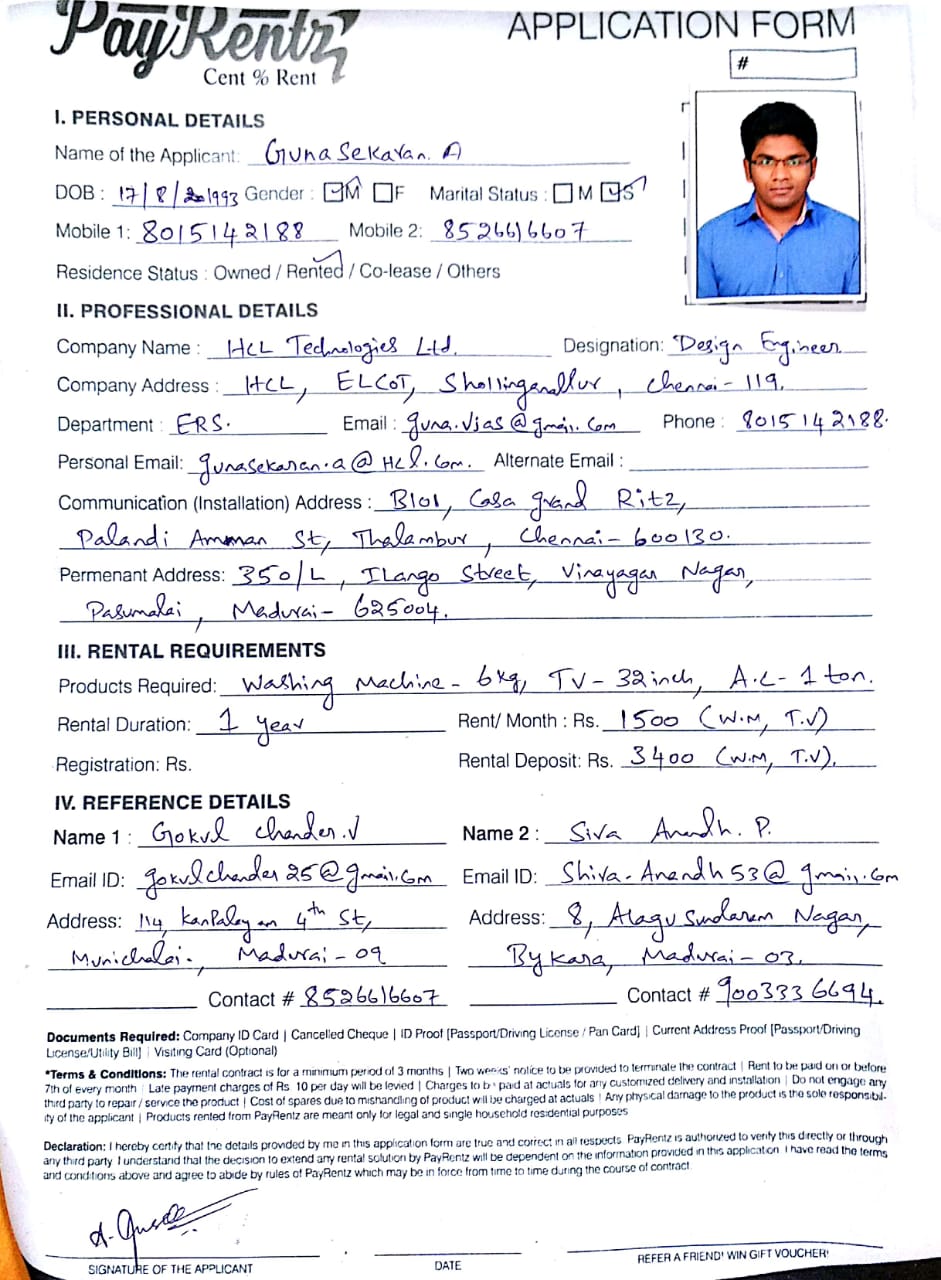 PayRentz
Cent % Rent
APPLICATION FORM
#
I. PERSONAL DETAILS
Name of the Applicant: Gunasekaran. A
DOB : 17/8/1993 Gender : M F Marital Status : M S
Mobile 1: 8015142188 Mobile 2: 8526616607
Residence Status : Owned / Rented / Co-lease / Others
II. PROFESSIONAL DETAILS
Company Name : HCL Technologies Ltd. Designation: Design Engineer
Company Address : HCL, ELCOT, Shollinganallur, Chennai - 119.
Department : ERS. Email : guna.vjas@gmail.com Phone : 8015142188.
Personal Email: gunasekaran.a@HCl.com. Alternate Email :
Communication (Installation) Address : B101, Casa grand Ritz,
Palandi Amman St, Thalambur, Chennai - 600130.
Permenant Address: 350/L, ILango Street, Vinayagar Nagar,
Pasumalai, Madurai - 625004.
III. RENTAL REQUIREMENTS
Products Required: Washing Machine - 6kg, TV - 32 inch, A.C - 1 ton.
Rental Duration: 1 year Rent/ Month : Rs. 1500 (W.M, T.V)
Registration: Rs. Rental Deposit: Rs. 3400 (W.M, T.V).
IV. REFERENCE DETAILS
Name 1 : Gokul Chander.V Name 2 : Siva Anandh. P.
Email ID: gokulchander25@gmail.com Email ID: Shiva-Anandh53@gmail.com
Address: 114, KanPalayam 4th St, Address: 8, Alagu Sundaram Nagar,
Munichalai., Madurai - 09 Bykara, Madurai - 03.
Contact # 8526616607 Contact # 9003336694.
Documents Required: Company ID Card | Cancelled Cheque | ID Proof [Passport/Driving License / Pan Card] | Current Address Proof [Passport/Driving
License/Utility Bill] | Visiting Card (Optional)
*Terms & Conditions: The rental contract is for a minimum period of 3 months | Two weeks' notice to be provided to terminate the contract | Rent to be paid on or before
7th of every month | Late payment charges of Rs 10 per day will be levied | Charges to be paid at actuals for any customized delivery and installation | Do not engage any
third party to repair / service the product | Cost of spares due to mishandling of product will be charged at actuals | Any physical damage to the product is the sole responsibil-
ity of the applicant | Products rented from PayRentz are meant only for legal and single household residential purposes
Declaration: I hereby certify that the details provided by me in this application form are true and correct in all respects. PayRentz is authorized to verify this directly or through
any third party. I understand that the decision to extend any rental solution by PayRentz will be dependent on the information provided in this application. I have read the terms
and conditions above and agree to abide by rules of PayRentz which may be in force from time to time during the course of contract.
SIGNATURE OF THE APPLICANT DATE REFER A FRIEND! WIN GIFT VOUCHER!